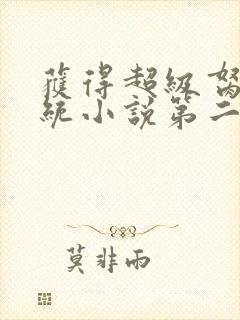 獲得超級
統小說第二
莫非雨